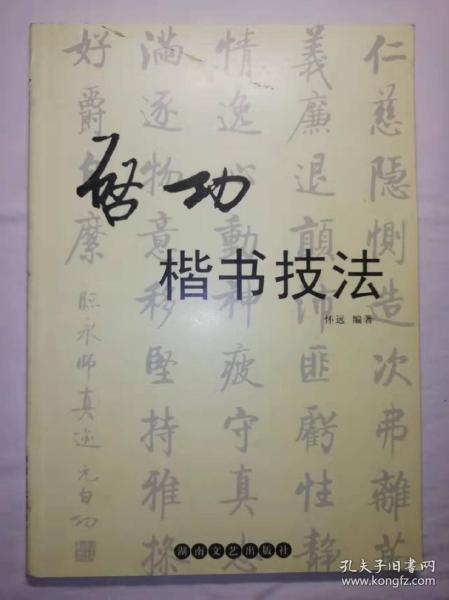 启功
楷书技法
怀远 编著
仁慈隱惻造次弗離
義廉退顛沛匪虧性靜
情逸心動神疲守真志
滿逐物意移堅持雅操
好爵自縻
臨永師真迹 元白功
湖南文艺出版社
孔夫子旧书网
www.kongfz.com